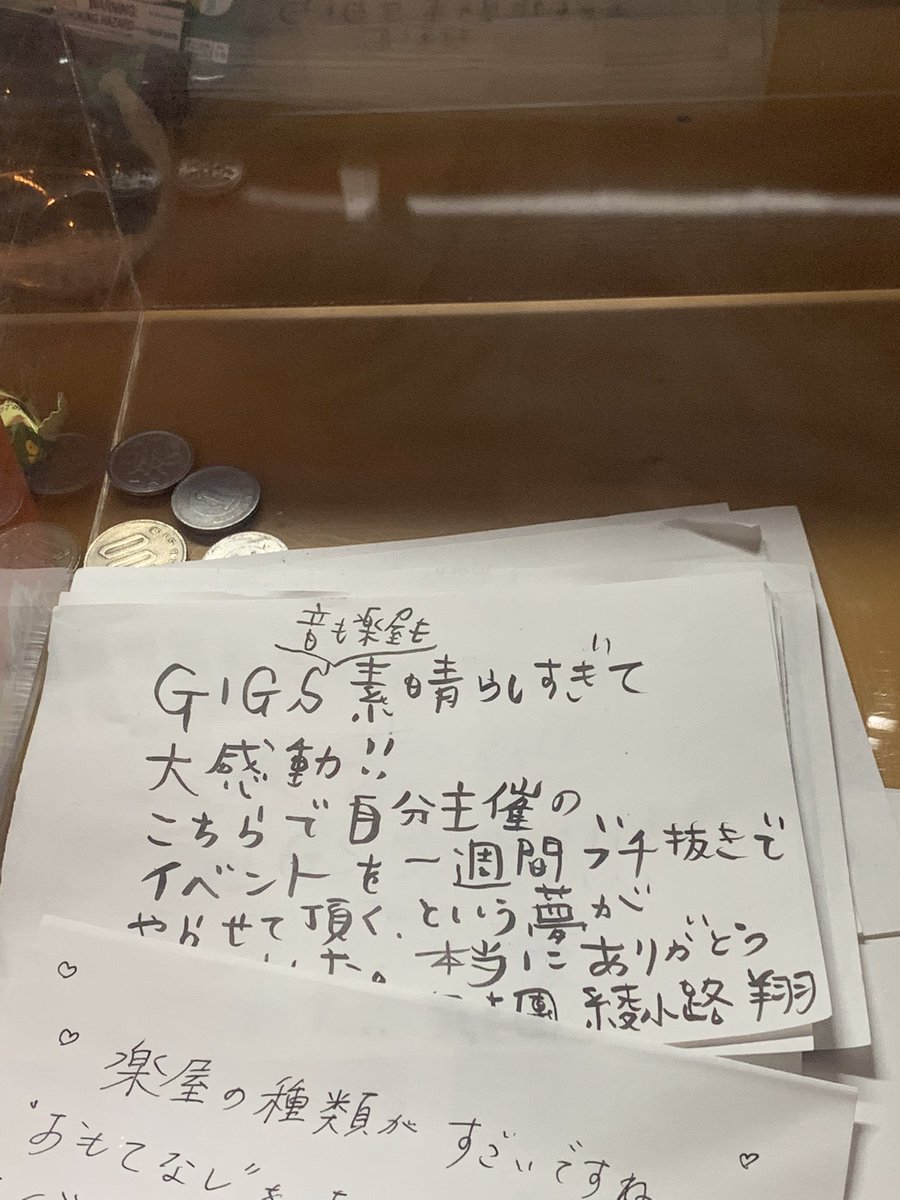 音も楽屋も
GIGS 素晴らしすぎて
大感動!!
こちらで自分主催の
イベントを一週間ブチ抜きで
やらせて頂く、という夢が
いた。本当にありがとう
團 綾小路 翔
♡
♡
楽屋の種類が すごいですね
"おもてなし"
♡
100
1